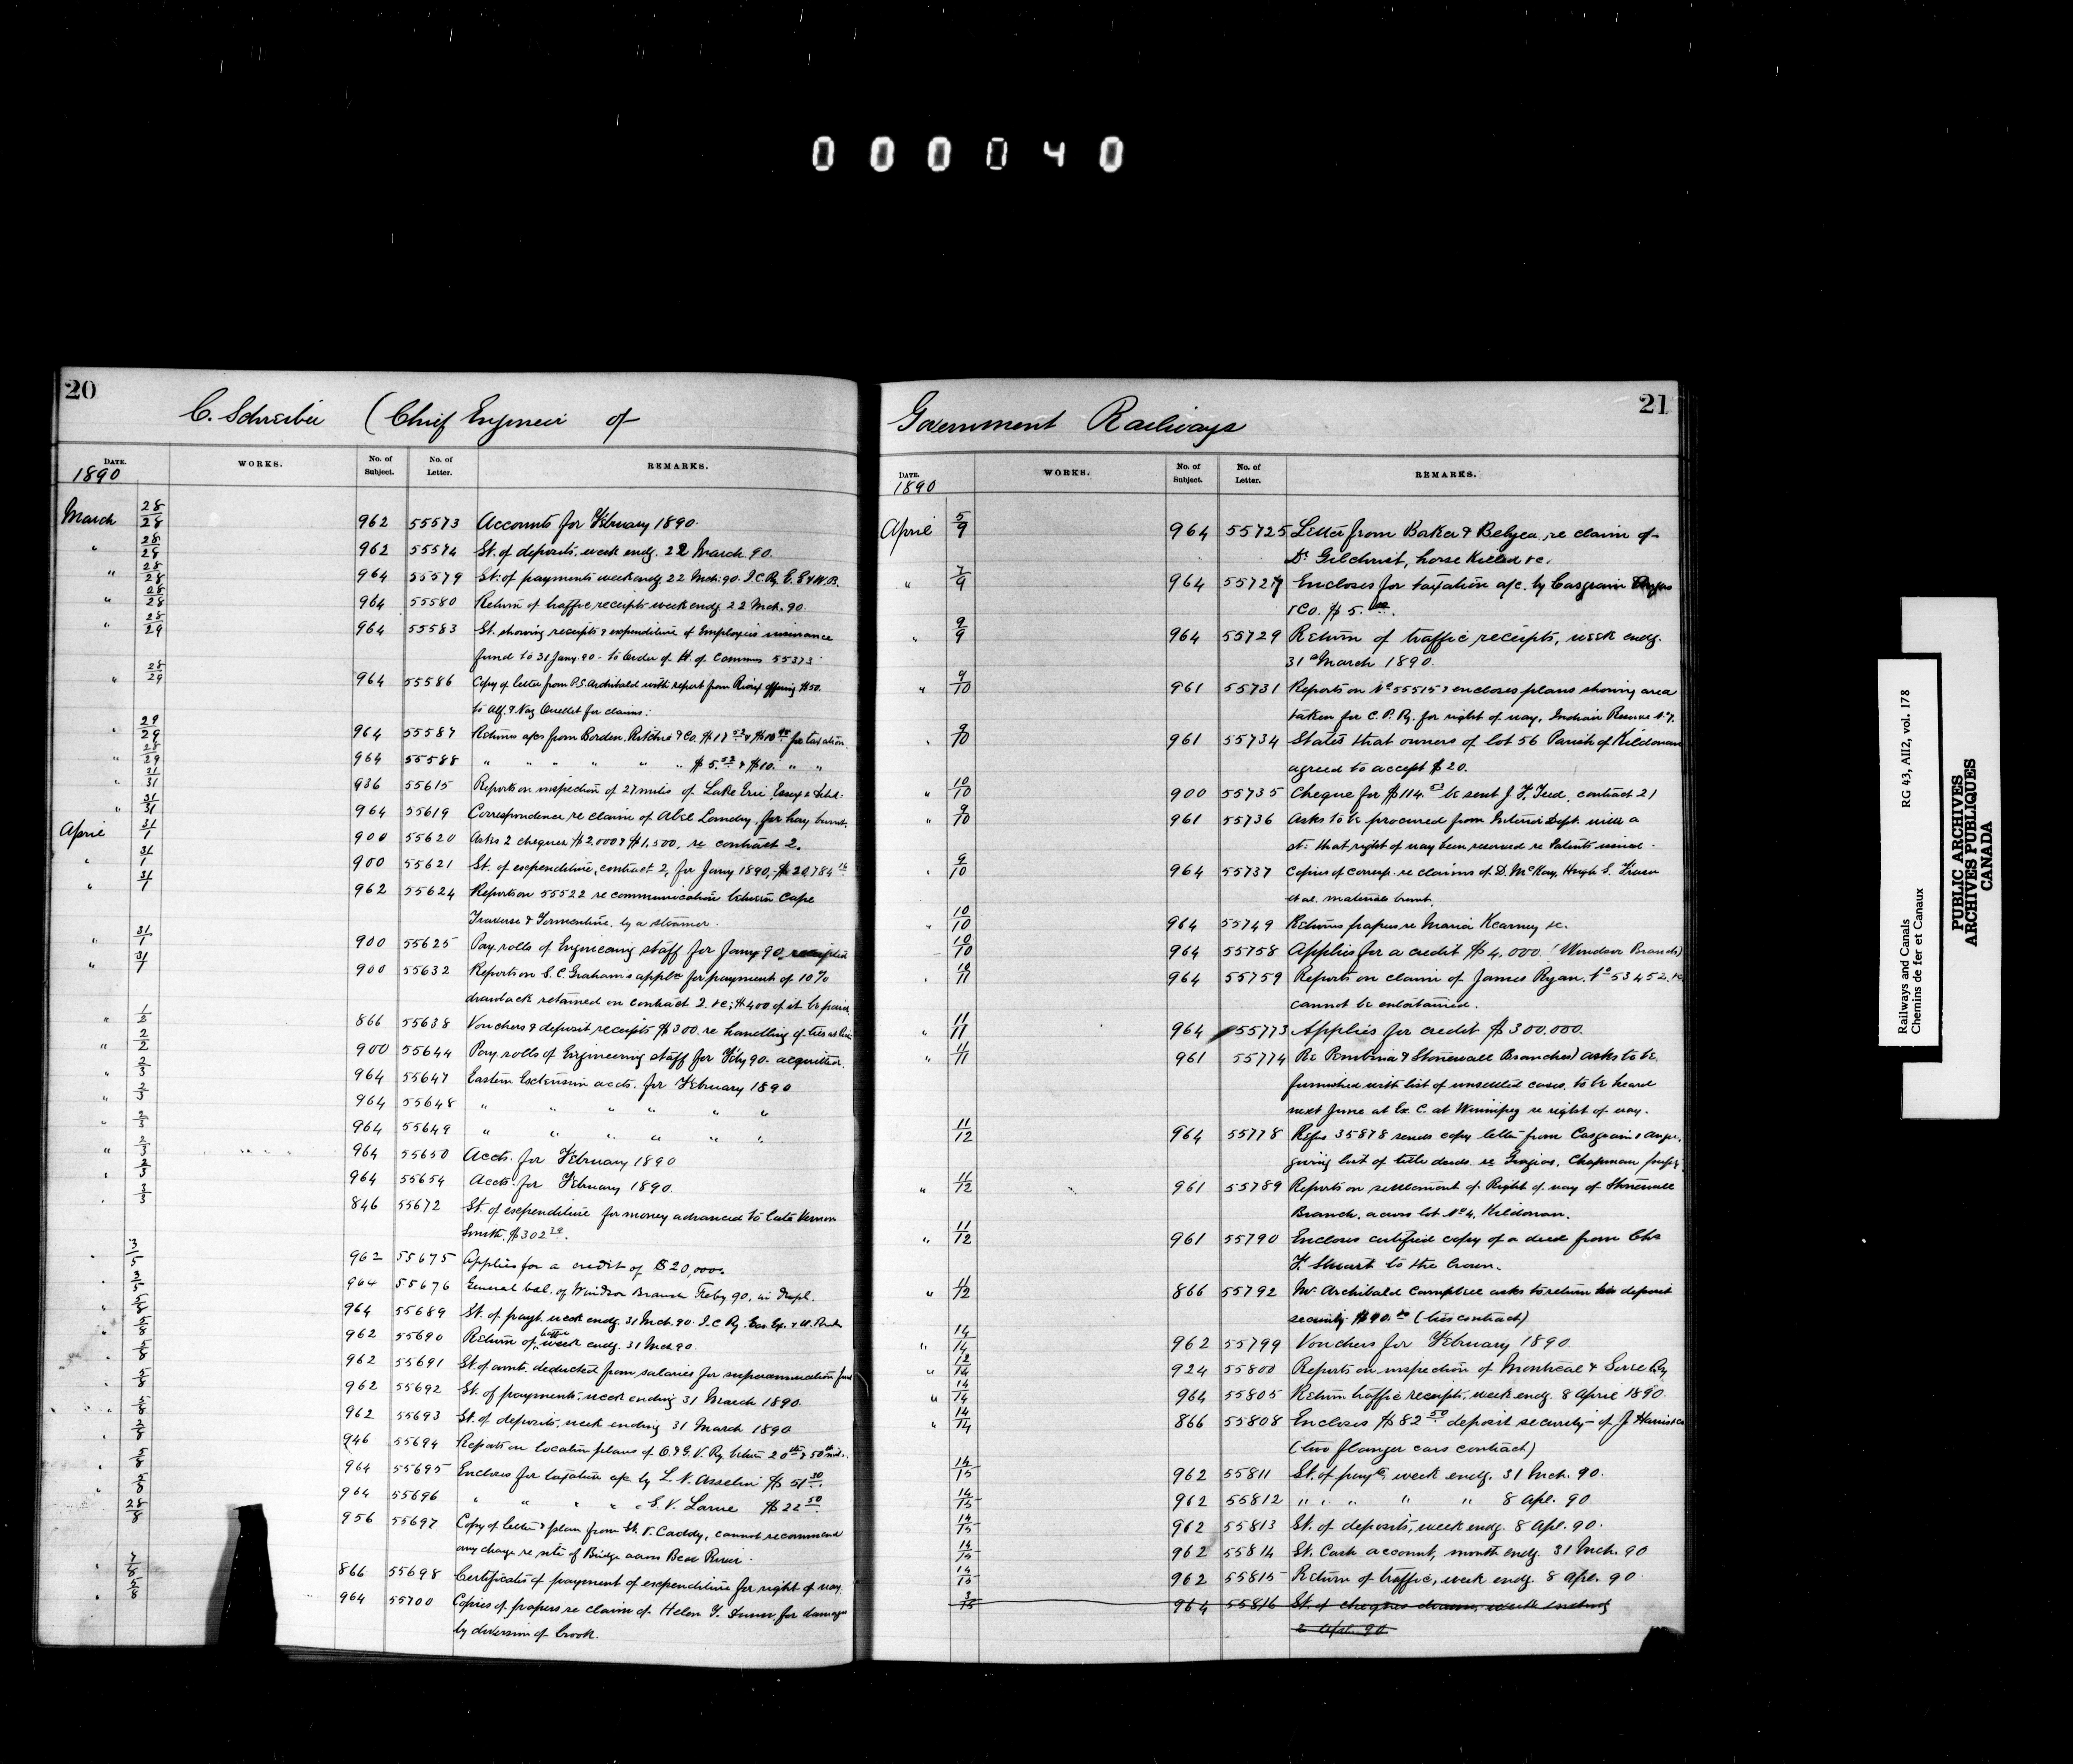 000040
20
C. Schreiber (Chief Engineer of
DATE. WORKS. No. of Subject. No. of Letter. REMARKS.
1890
March 28/28 962 55573 Accounts for February 1890.
" 28/28 962 55574 St. of deposits, week endg. 22 March 90.
" 28/28 964 55579 St. of payments week endg. 22 Mch. 90. I.C.Ry. E.E & W.B.
" 28/28 964 55580 Return of traffic receipts week endg. 22 Mch. 90.
" 28/29 964 55583 St. showing receipts & expenditure of Employees insurance
fund to 31 Jany. 90 - to order of H. of Commons 55373
" 28/29 964 55586 Copy of letter from P.S. Archibald with report from offering $50.
to Alf. & Naz Ouellet for claims.
" 29/29 964 55587 Returns a/cs from Borden, Ritchie & Co. for taxation.
" 28/29 964 55588 " " " " " " $5.53 & $10. " "
" 31/31 936 55615 Reports on inspection of 27 miles of Lake Erie, Essex &
" 31/31 964 55619 Correspondence re claim of Abel Landry, for hay burnt.
April 31/1 900 55620 Asks 2 cheques $2,000 & $1,500, re contract 2.
" 31/1 900 55621 St. of expenditure, contract 2, for Jany 1890, $20,784.16
" 31/1 962 55624 Reports on 55522 re communication between Cape
Traverse & Tormentine, by a steamer.
" 31/1 900 55625 Pay rolls of Engineering staff for Jany 90
" 31/1 900 55632 Reports on S.C. Graham's applcn for payment of 10%
drawback retained on contract 2. &c; $400 of it be paid
" 1/2 866 55638 Vouchers & deposit receipts $300. re handling of ties at
" 2/2 900 55644 Pay rolls of Engineering staff for Feby 90. acquitted.
" 2/3 964 55647 Eastern Extension accts. for February 1890
" 2/3 964 55648 " " " " " "
" 2/3 964 55649 " " " " " "
" 2/3 964 55650 Accts. for February 1890
" 2/3 964 55654 Accts. for February 1890.
" 3/3 846 55672 St. of expenditure for money advanced to late Vernon
Smith, $302
" 3/5 962 55675 Applies for a credit of $20,000.
" 3/5 964 55676 General bal. of Windsor Branch Feby 90, in dupl.
" 5/8 964 55689 St. of payt. week endg. 31 Mch. 90. I.C Ry. Eas. Ex. & W.
" 5/8 962 55690 Return of traffic week endg. 31 Mch 90.
" 5/8 962 55691 St. of amts. deducted from salaries for superannuation fund
" 5/8 962 55692 St. of payments, week ending 31 March 1890.
" 5/8 962 55693 St. of deposits, week ending 31 March 1890
2/8 946 55694 Reports on location plans of O. & G. V. Ry. betwn 20th & 50th
" 5/8 964 55695 Encloses for taxation a/c by L. N. Asselin $51.30
" 5/8 964 55696 " " " " " E. V. Larue $22.50
28/8 956 55697 Copy of letter & plan from St. V. Caddy, cannot recommend
any change re site of Bridge across Bear River.
" 7/8 866 55698 Certificates of payment of expenditure for right of way.
" 5/8 964 55700 Copies of papers re claim of Helen Y. for damages
by diversion of brook.
21
Government Railways
DATE. WORKS. No. of Subject. No. of Letter. REMARKS.
1890
April 5/9 964 55725 Letter from Baker & Belyea, re claim of
Dr. Gilchrist, horse killed &c.
" 7/9 964 55727 Encloses for taxation a/c. by Casgrain Angers
& Co. $5.
" 9/9 964 55729 Return of traffic receipts, week endg.
31 March 1890.
" 9/10 961 55731 Reports on No 55515 & encloses plans showing area
taken for C. P. Ry. for right of way, Indian Reserve No 7.
" 9/10 961 55734 States that owners of lot 56 Parish of Kildonan
agreed to accept $20.
" 10/10 900 55735 Cheque for $114.53 be sent J. F. Teed, contract 21
" 9/10 961 55736 Asks to be procured from Interior Dept. with a
st. that right of way been reserved re Patents issued.
" 9/10 964 55737 Copies of corresp. re claims of D. McKay, Hugh S. Fraser
et al. materials burnt.
" 10/10 964 55749 Returns papers re Maria Kearney &c.
10/10 964 55758 Applies for a credit $4,000. (Windsor Branch)
" 10/11 964 55759 Reports on claim of James Ryan. No 53452. &c
cannot be entertained.
" 11/11 964 55773 Applies for credit $300,000.
" 11/11 961 55774 Re Pembina & Stonewall Branches) asks to be
furnished with list of unsettled cases, to be heard
next June at Ex. C. at Winnipeg re right of way.
11/12 964 55778 Refers 35878 sends copy letter from Casgrain & Angers,
giving list of title deeds. re Chapman
" 11/12 961 55789 Reports on settlement of Right of way of Stonewall
Branch, across lot No 4, Kildonan.
" 11/12 961 55790 Encloses certified copy of a deed from Chs
F. Stuart to the Crown.
" 11/12 866 55792 Mr. Archibald Campbell asks to return his deposit
security $90.00 (ties contract)
" 14/14 962 55799 Vouchers for February 1890.
" 12/14 924 55800 Reports on inspection of Montreal & Sorel Ry
" 14/14 964 55805 Return traffic receipts, week endg. 8 April 1890.
" 14/14 866 55808 Encloses $82.50 deposit security of J. Harris & Co
(two flanger cars contract)
14/15 962 55811 St. of payts, week endg. 31 Mch. 90.
14/15 962 55812 " " " " " 8 Apl. 90
14/15 962 55813 St. of deposits, week endg. 8 Apl. 90.
14/15 962 55814 St. Cash account, month endg. 31 Mch. 90
14/15 962 55815 Return of traffic, week endg. 8 Apl. 90.
3/15 964 55816 St. of cheques drawn, week ending
2 Apl. 90
Railways and Canals RG 43, AII2, vol. 178
Chemins de fer et Canaux
PUBLIC ARCHIVES
ARCHIVES PUBLIQUES
CANADA